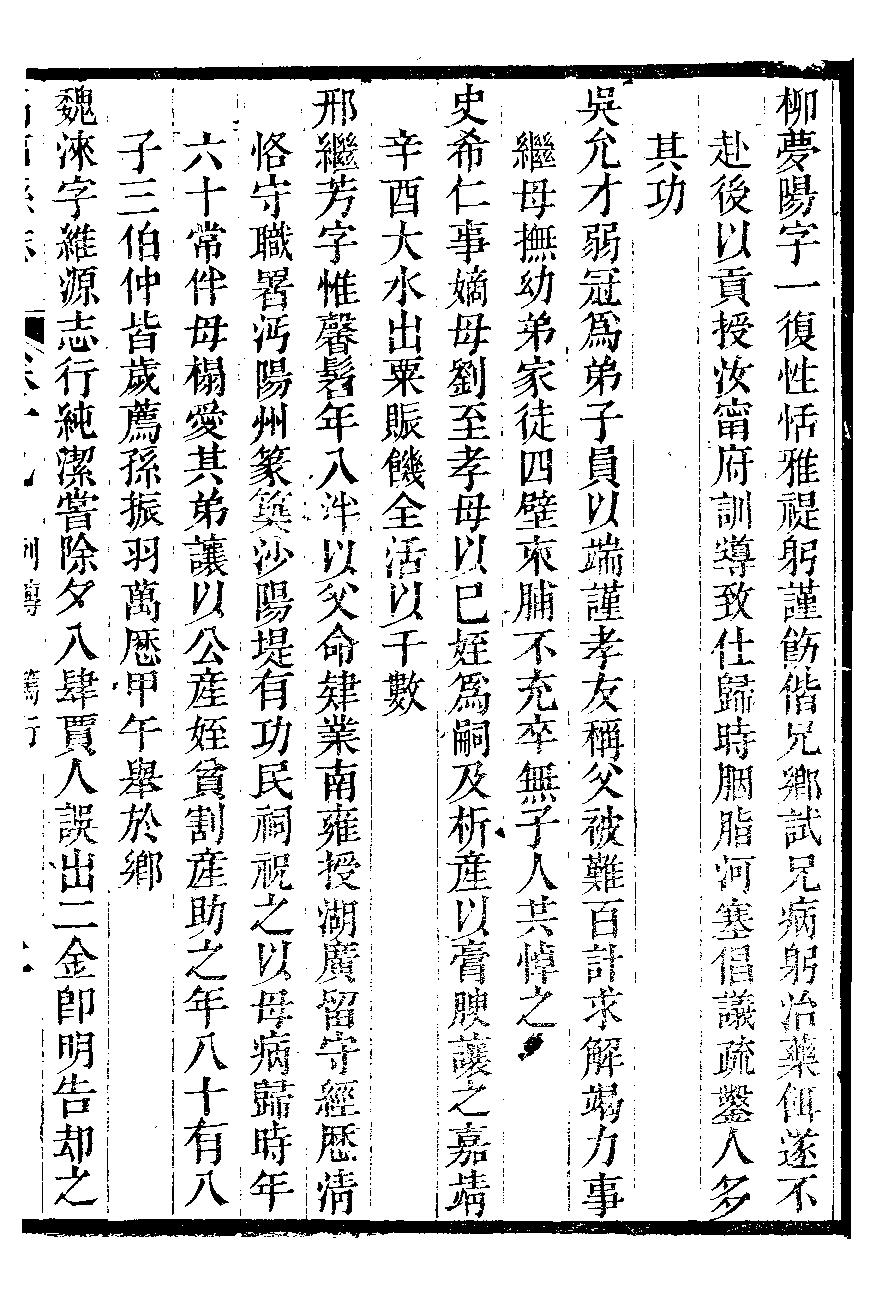 柳夢陽字一復性恬雅禔躬謹飭偕兄鄉試兄病躬治藥餌遂不
赴後以貢授汝甯府訓導致仕歸時胭脂河塞倡議疏鑿人多
其功
吳允才弱冠爲弟子員以端謹孝友稱父被難百計求解竭力事
繼母撫幼弟家徒四壁束脯不充卒無子人共悼之
史希仁事嫡母劉至孝母以已姪爲嗣及析產以膏腴讓之嘉靖
辛酉大水出粟賑饑全活以千數
邢繼芳字惟馨髫年入泮以父命肄業南雍授湖廣留守經歷淸
恪守職署沔陽州篆築沙陽堤有功民祠祝之以母病歸時年
六十常伴母榻愛其弟讓以公產姪貧割產助之年八十有八
子三伯仲皆歲薦孫振羽萬歷甲午舉於鄉
魏淶字維源志行純潔嘗除夕入肆賈人誤出二金卽明告却之
卷十九 列傳 篤行